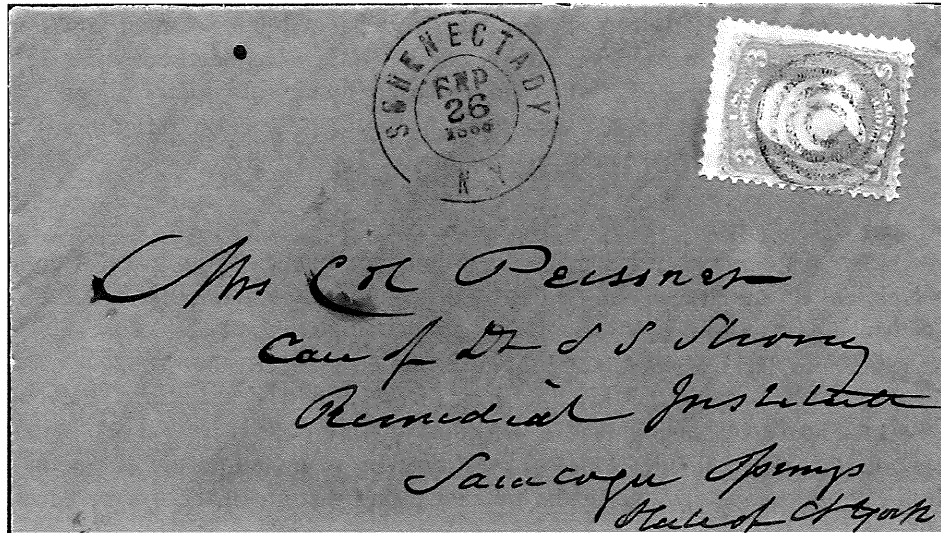 SCHENECTADY
SEP
26
N.Y.
3 3
Mrs Col Peissner
Care of Dr S S Strong
Remedial Institute
Saratoga Springs
State of N York